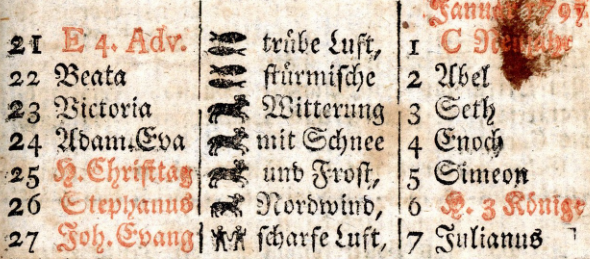 Januar 1797.
21 E 4. Adv. trübe Luft, 1 C Neujahr
22 Beata stürmische 2 Abel
23 Victoria Witterung 3 Seth
24 Adam.Eva mit Schnee 4 Enoch
25 H.Christtag und Frost, 5 Simeon
26 Stephanus Nordwind, 6 H. 3 Könige
27 Joh. Evang scharfe Luft, 7 Julianus